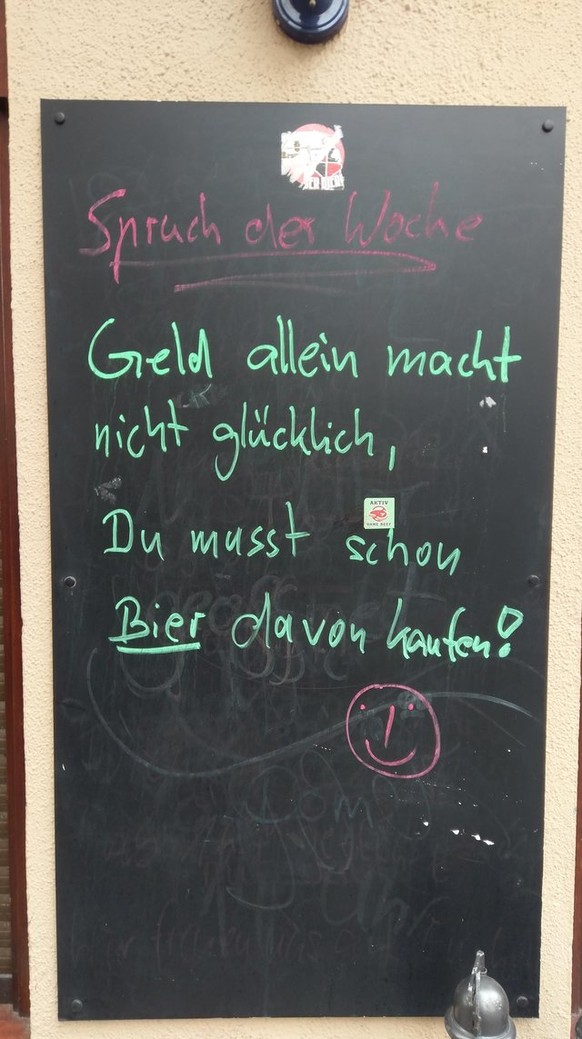 Spruch der Woche
Geld allein macht
nicht glücklich,
Du musst schon
Bier davon kaufen!
AKTIV